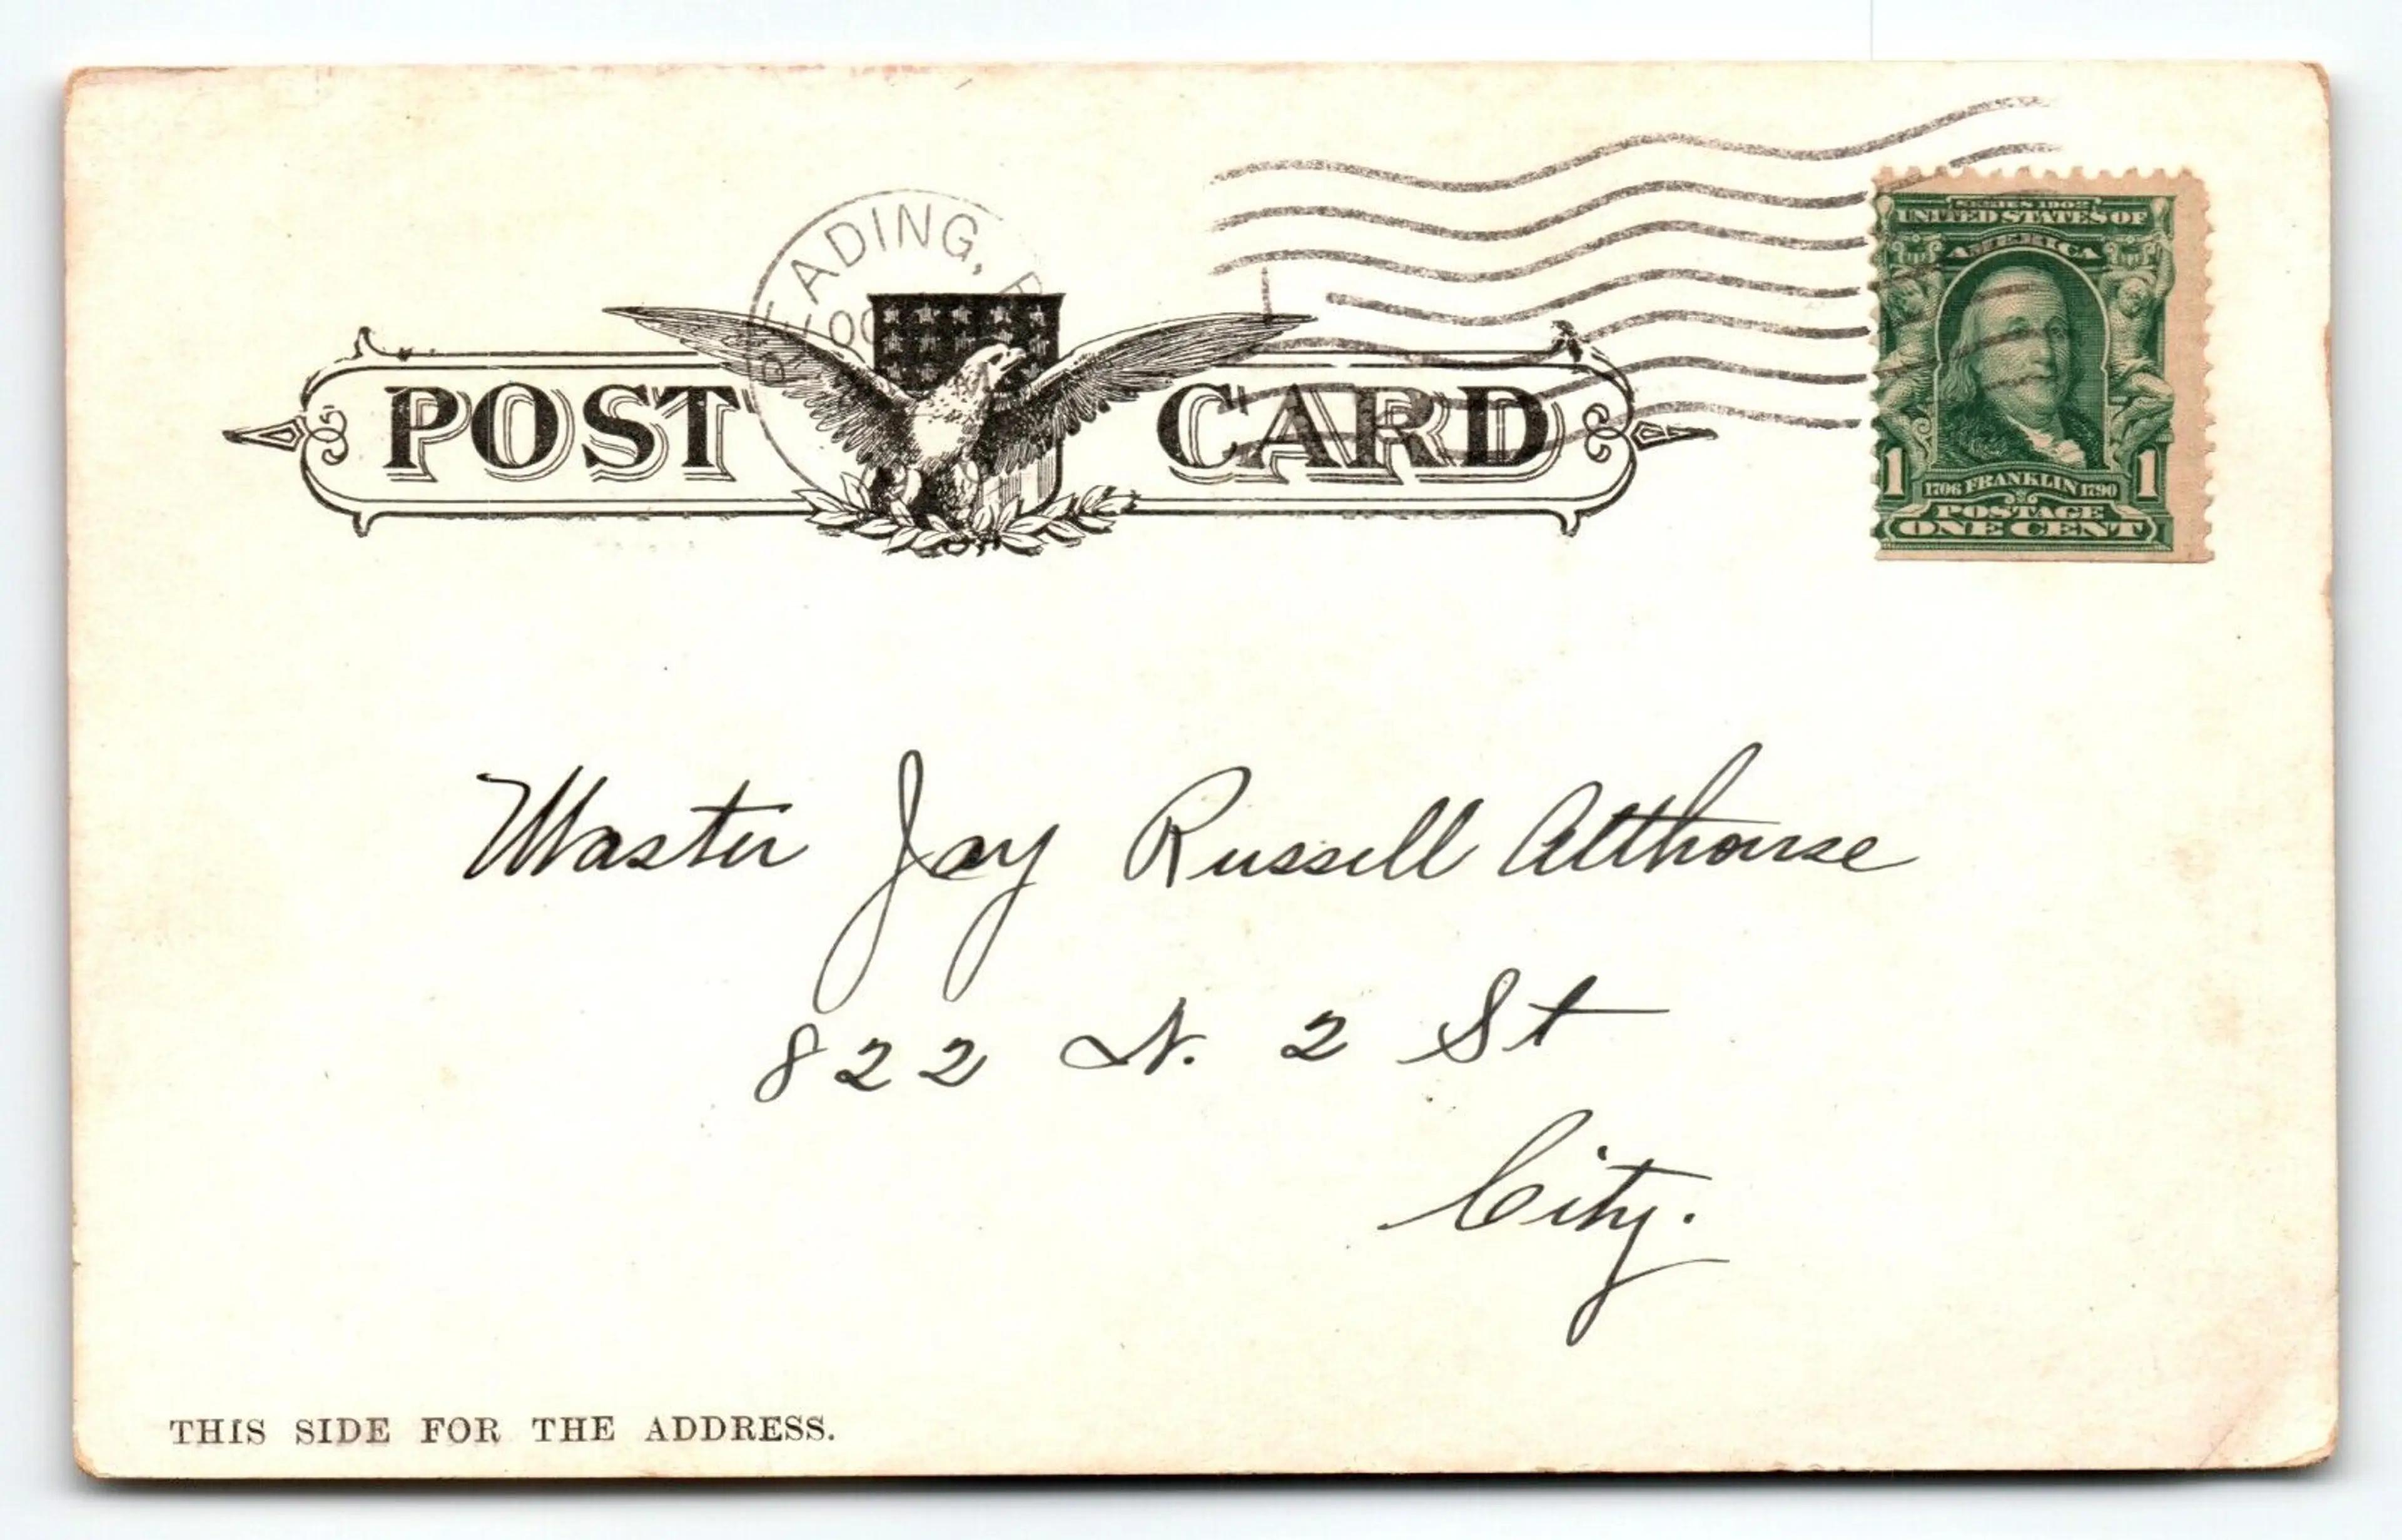 READING, P
OC
POST CARD
SERIES 1902
UNITED STATES OF
AMERICA
1 1706 FRANKLIN 1790 1
POSTAGE
ONE CENT
Master Jay Russell Althouse
822 N. 2 St
City.
THIS SIDE FOR THE ADDRESS.